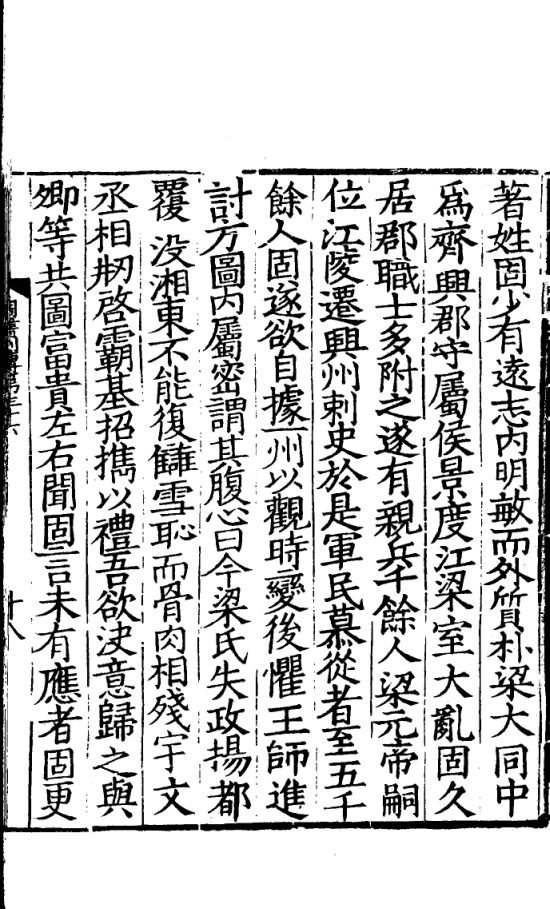 著姓固少有遠志内明敏而外質朴梁大同中
爲齊興郡守屬侯景度江梁室大亂固久
居郡職士多附之遂有親兵千餘人梁元帝嗣
位江陵遷興州刺史於是軍民慕從者至五千
餘人固遂欲自據一州以觀時變後懼王師進
討方圖内屬密謂其腹心曰今梁氏失政揚都
覆没湘東不能復讎雪恥而骨肉相殘宇文
丞相剏啓霸基招攜以禮吾欲決意歸之與
卿等共圖富貴左右聞固言未有應者固更
十八